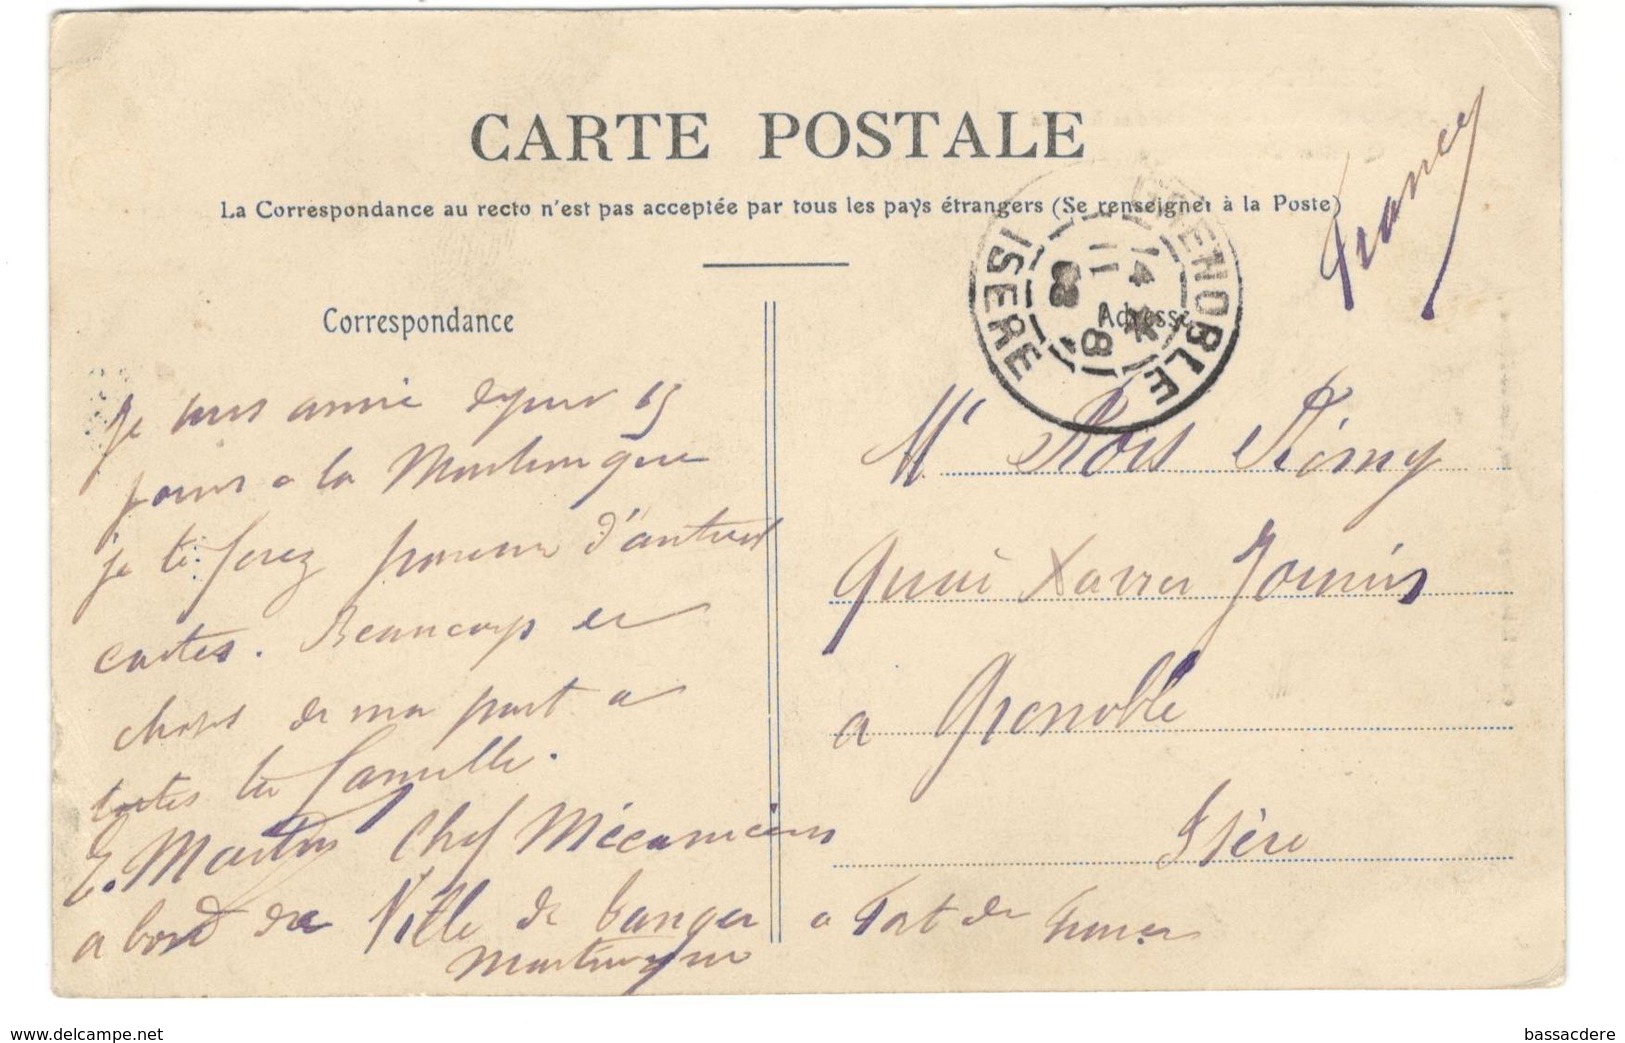 CARTE POSTALE
La Correspondance au recto n'est pas acceptée par tous les pays étrangers (Se renseigner à la Poste)
Correspondance
Adresse
GRENOBLE
ISERE
14 11 08
je suis arrivé depuis 15
jours a la Martinique
je te ferez parvenir d'autres
cartes. Beaucoup de
choses de ma part a
toutes ta famille.
E. Martin Chef Mécanicien
a bord de Ville de Tanger a Fort de France
Martinique
Mr Rémy
Quai Xavier Jouvin
a Grenoble
Isère
www.delcampe.net
bassacdere